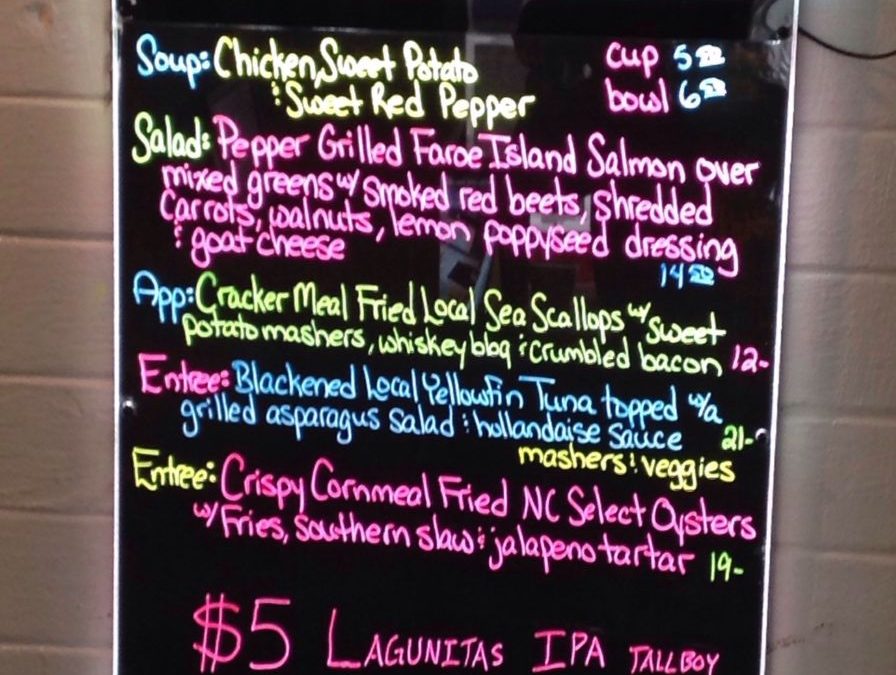 Soup: Chicken, Sweet Potato cup 5
& Sweet Red Pepper bowl 6
Salad: Pepper Grilled Faroe Island Salmon over
mixed greens w/ smoked red beets, shredded
carrots, walnuts, lemon poppyseed dressing
& goat cheese
14 50
App: Cracker Meal Fried Local Sea Scallops w/ sweet
potato mashers, whiskey bbq & crumbled bacon 12-
Entree: Blackened Local Yellowfin Tuna topped w/a
grilled asparagus salad & hollandaise sauce 21-
mashers & veggies
Entree: Crispy Cornmeal Fried NC Select Oysters
w/ Fries, Southern slaw & jalapeno tartar 19-
$5 LAGUNITAS IPA TALL BOY